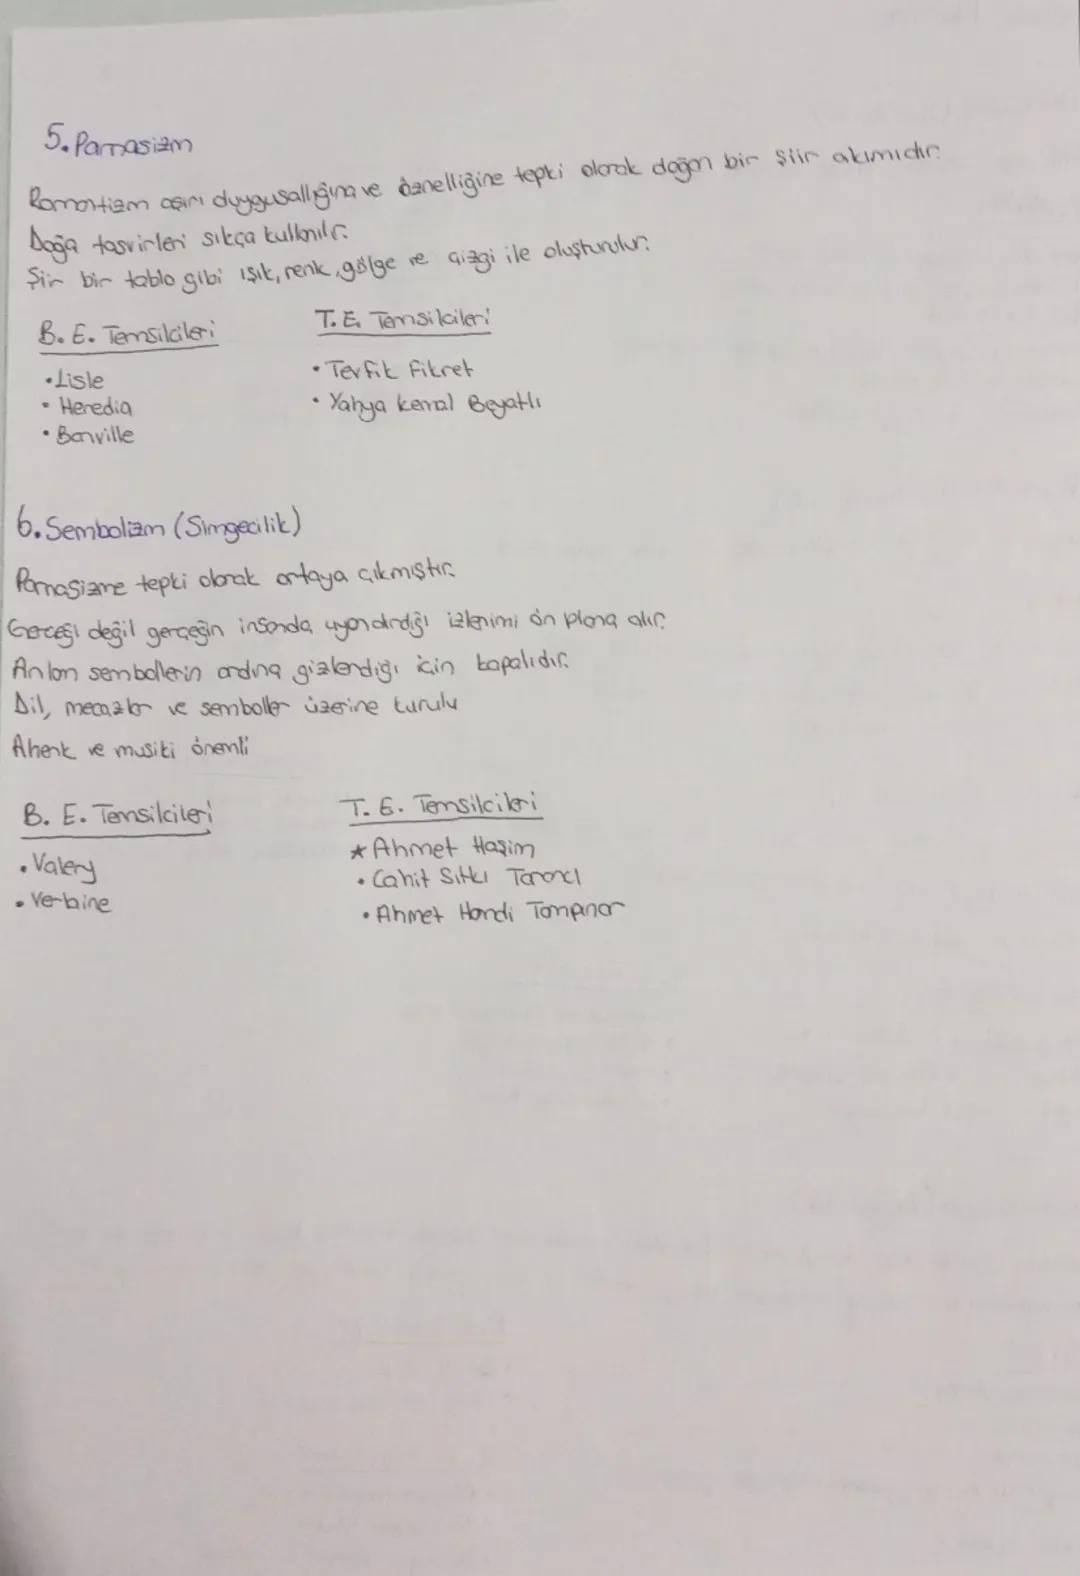 5. Parnasizm
Romantizm aşırı duygusallığına ve öznelliğine tepki olarak doğan bir şiir akımıdır.
Doğa tasvirleri sıkça kullanılır.
Şiir bir tablo gibi ışık, renk, gölge ve çizgi ile oluşturulur.
B. E. Temsilcileri T. E. Temsilcileri
• Lisle • Tevfik Fikret
• Heredia • Yahya Kemal Beyatlı
• Banville
6. Sembolizm (Simgecilik)
Parnasizme tepki olarak ortaya çıkmıştır.
Gerçeği değil gerçeğin insanda uyandırdığı izlenimi ön plana alır.
Anlam sembollerin ardına gizlendiği için kapalıdır.
Dil, mecazlar ve semboller üzerine kurulu
Ahenk ve musiki önemli
B. E. Temsilcileri T. E. Temsilcileri
• Valery ★ Ahmet Haşim
• Verlaine • Cahit Sıtkı Tarancı
• Ahmet Hamdi Tanpınar